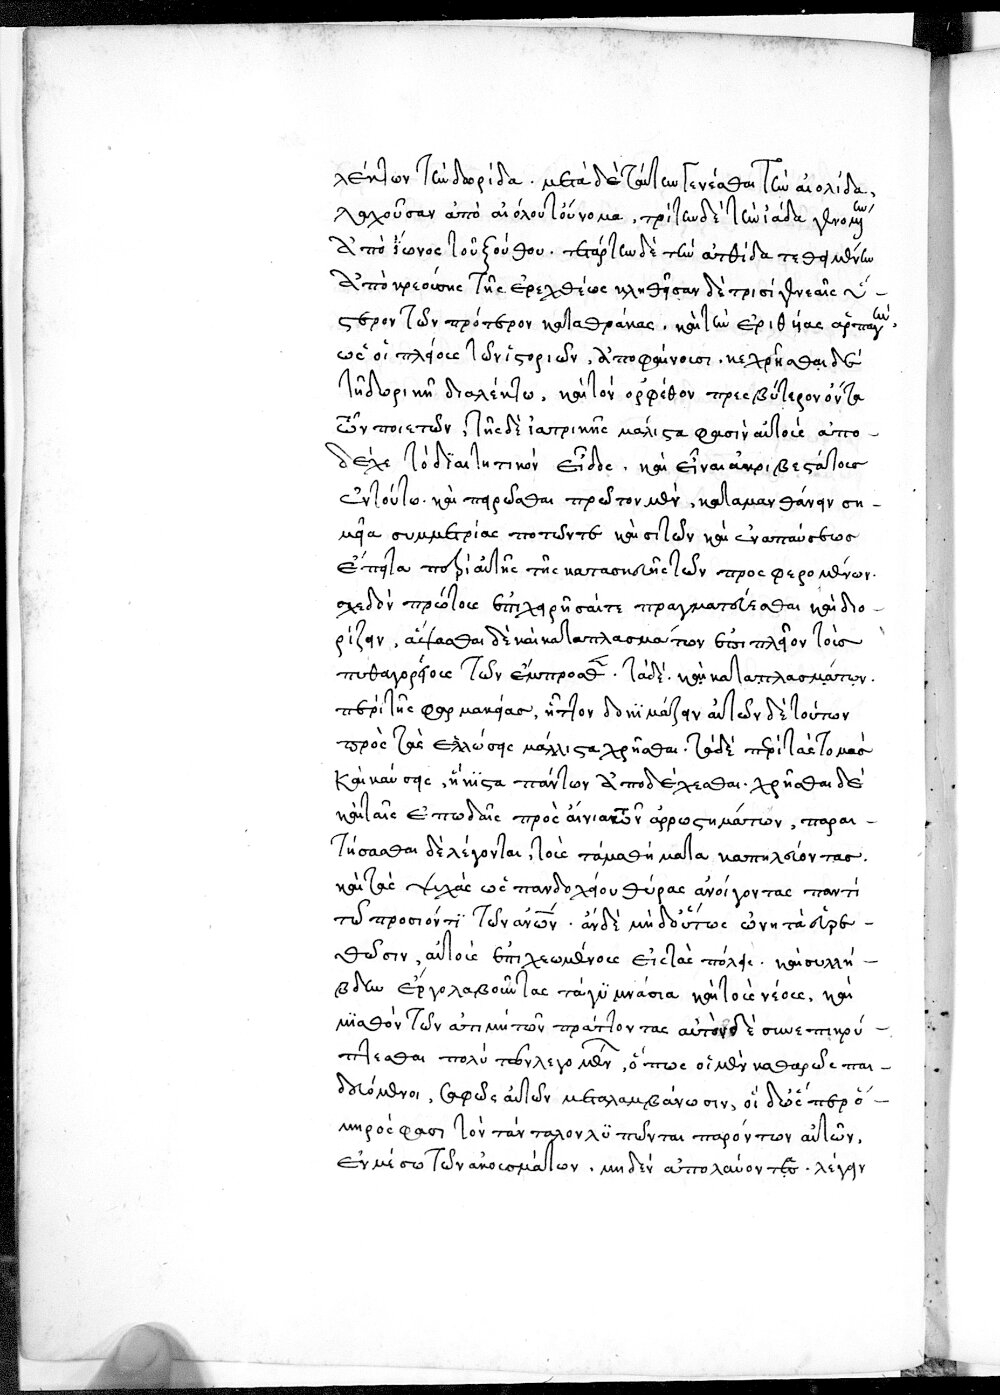 λέκτων τὴν δωρίδα. μετὰ δὲ ταύτην γενέσθαι τὴν αἰολίδα,
λαχοῦσαν ἀπὸ αἰόλου τοὔνομα, τρίτην δὲ τὴν ἰάδα γνομένην
ἀπὸ ἴωνος τοῦ ξούθου. τετάρτην δὲ τὴν ἀτθίδα τεθημένην
ἀπὸ κρεούσης τῆς ἐρεχθέως κληθῆσαν δὲ τρισὶ γενεαῖς ὕ-
στερον τῶν πρότερον κατα θράκας. καὶ τὴν ὠριθήας ἁρπαγήν.
ὡς οἱ πλείοις τῶν ἱστοριῶν, ἀποφαίνουσι. κεχρῆσθαι δὲ
τῇ δωρικῇ διαλέκτω, καὶ τὸν ὀρφέθον πρεσβύτερον ὄντα
τῶν ποιετῶν, τῆς δὲ ἰατρικῆς μάλιστα φασὶν αὐτοὺς ἀπο-
δέχε τὸ διαιτητικὸν εἶδος. καὶ εἶναι ἀκριβεστάτοις
ἐν τούτω. καὶ πειρῶσθαι πρῶτον μὲν, καταμανθάνειν ση-
μεῖα συμμετρίας ποτῶν τε καὶ σιτῶν καὶ ἀναπαύσεως
ἔπειτα περὶ αὐτῆς τῆς κατασκευῆς τῶν προσφερομένων.
σχεδὸν πρώτοις ἐπιχειρῆσαί τε πραγματεύεσθαι καὶ διο-
ρίζειν, ἅψασθαι δὲ καὶ καταπλασμάτων ἐπὶ πλεῖον τοὺς
πυθαγορείοις τῶν ἔμπροσθεν. τὰ δὲ. καὶ καταπλασμάτων.
περὶ τῆς φαρμακείας, ἧττον δοκιμάζειν αὐτῶν δὲ τούτων
πρὸς τὰς ἑλκώσεις μάλλιστα χρῆσθαι. τὰ δὲ περὶ τὰς τομὰς
καὶ καύσεις, ἥκιστα πάντων ἀποδέχεσθαι. χρῆσθαι δὲ
καὶ ταῖς ἐπωδαῖς πρὸς αἴνια τῶν ἀρρωστημάτων, παραι-
τήσασθαι δὲ λέγονται, τοὺς τὰ μαθήματα καπηλεύοντας.
καὶ τὰς ψυχὰς ὡς πανδοχείου θύρας ἀνοίγοντας παντὶ
τῶ προσιόντι τῶν ἀνων. ἂν δὲ μηδ' οὕτως ὠνητὰ εὑρε-
θῶσιν, αὐτοὺς ἐπιχεωμένοις εἰς τὰς πόλεις. καὶ συλλή-
βδην ἐργολαβοῦντας τὰ γυμνάσια καὶ τοὺς νέοις, καὶ
μισθὸν τῶν ἀτιμήτων πράττοντας αὐτὸν δὲ συνεπικρύ-
πτεσθαι πολὺ τῶν λεγομένων, ὅπως οἱ μὲν καθαρῶς παι-
δευόμενοι, σαφῶς αὐτῶν μεταλαμβάνωσιν, οἱ δ' ὥσπερ ὅ-
μηρός φασι τὸν τάνταλον λυπῶνται παρόντων αὐτῶν,
ἐν μέσω τῶν ἀκουσμάτων. μηδὲν ἀπολαύοντες. λέγειν